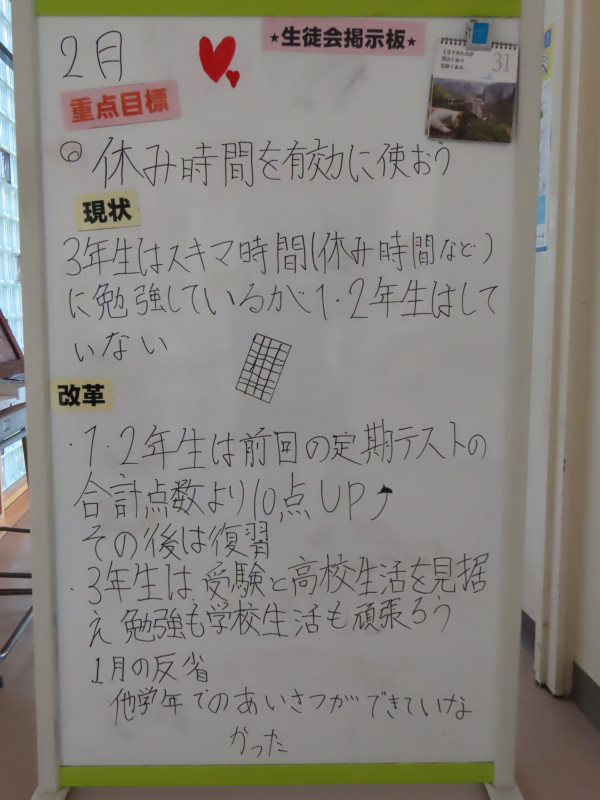 ★生徒会掲示板★
2月
31
重点目標
◎休み時間を有効に使おう
現状
3年生はスキマ時間(休み時間など)
に勉強しているが1・2年生はして
いない
改革
・1・2年生は前回の定期テストの
合計点数より10点UP↗
その後は復習
・3年生は、受験と高校生活を見据
え勉強も学校生活も頑張ろう
1月の反省
他学年でのあいさつができていな
かった